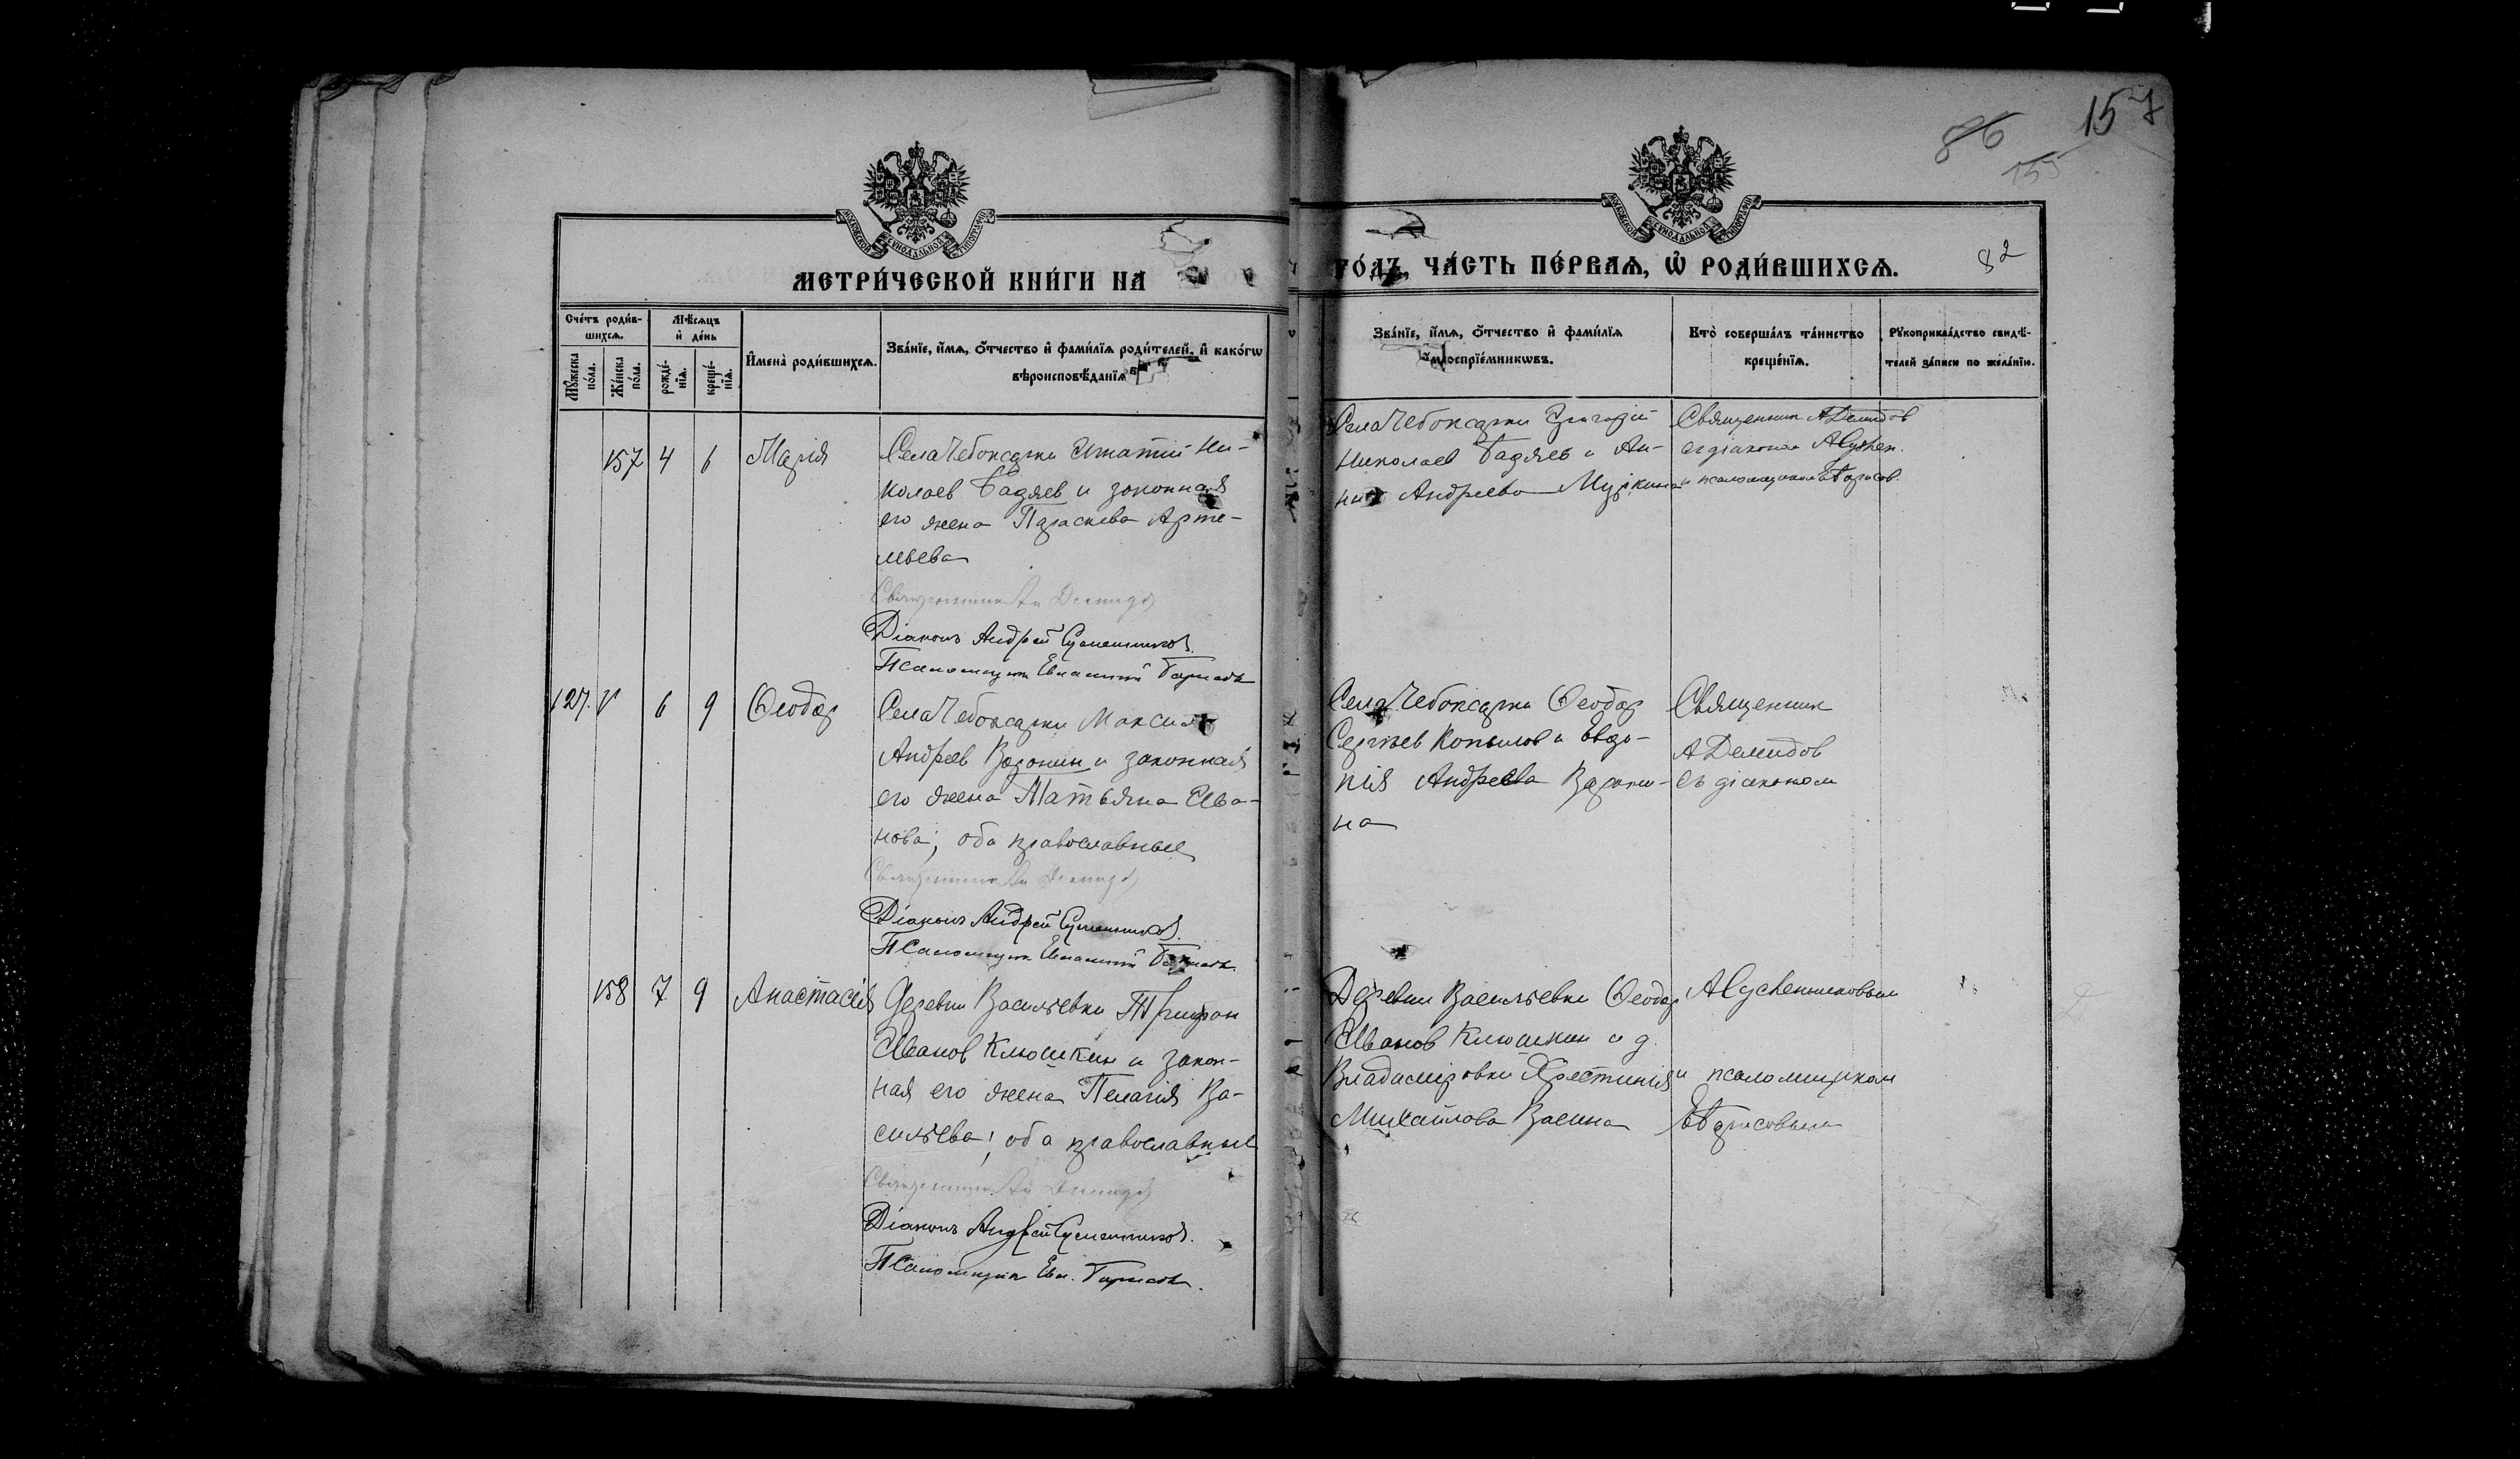 86
157
155
82
МОСКОВСКОЙ СѴНОДАЛЬНОЙ ТИПОГРАФІИ
МОСКОВСКОЙ СѴНОДАЛЬНОЙ ТИПОГРАФІИ
МЕТРИ́ЧЕСКОЙ КНИ́ГИ НА
ГО́ДЪ, ЧА́СТЬ ПЕ́РВАЯ, Ѡ РОДИ́ВШИХСЯ.
Сче́тъ роди́в-
шихся.
Мꙋ́жеска по́ла.
Же́нска по́ла.
Мѣ́сяцъ
и҆ де́нь
рожде́-
нїя.
креще́-
нїя.
И҆мена̀ роди́вшихся.
Зва́нїе, и҆́мя, ѻ҆́тчество и҆ фами́лїя роди́телей, и҆ како́гѡ
вѣроисповѣ́данїя
Зва́нїе, и҆́мя, ѻ҆́тчество и҆ фами́лїя
воспрїе́мникѡвъ.
Кто̀ соверша́лъ та́инство
креще́нїя.
Рꙋкоприкла́дство свидѣ́-
телей за́писи по жела́нїю.
157 4 6 Марія
Села Чебоксарки Игнатій Ни-
колаев Бадяев и законная
его жена Параскева Арте-
мьева
Священник Ал Демидов
Діаконъ Андрей Сушенников.
Псаломщик Евлампій Борисов
Села Чебоксарки Григорій
Николаев Бадяев и Ан-
на Андреева
Священник А Демидов
с діаконом А Сушен.
и псаломщиком Е Борисов.
127. 6 9 Ѳеодор
Села Чебоксарки Максим
Андреев Воронин и законная
его жена Татьяна Ива-
нова; оба православные
Священник Ал Демидов
Діаконъ Андрей Сушенников.
Псаломщик Евлампій Борисов
Села Чебоксарки Ѳеодор
Сергѣев Копылов и Евдо-
кія Андреева Ворони-
на
Священник
А Демидов
съ діаконом
158 7 9 Анастасія
Деревни Васильевки Трифон
Иванов Клюшкин и закон-
ная его жена Пелагія Ва-
сильева; оба православные
Священник Ал Демидов
Діаконъ Андрей Сушенников.
Псаломщик Евл. Борисов.
Деревни Васильевки Ѳеодор
Иванов Клюшкин и д.
Владиміровки Христинія
Михайлова Васина
А Сушенниковым
и псаломщиком
Е Борисовым